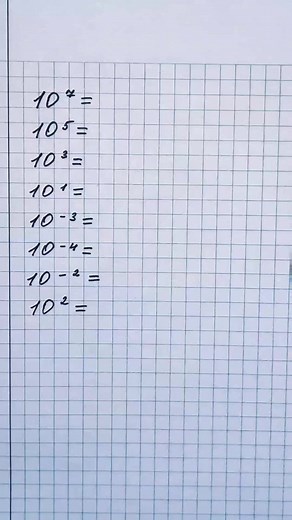 10⁷ =
10⁵ =
10³ =
10¹ =
10⁻³ =
10⁻⁴ =
10⁻² =
10² =